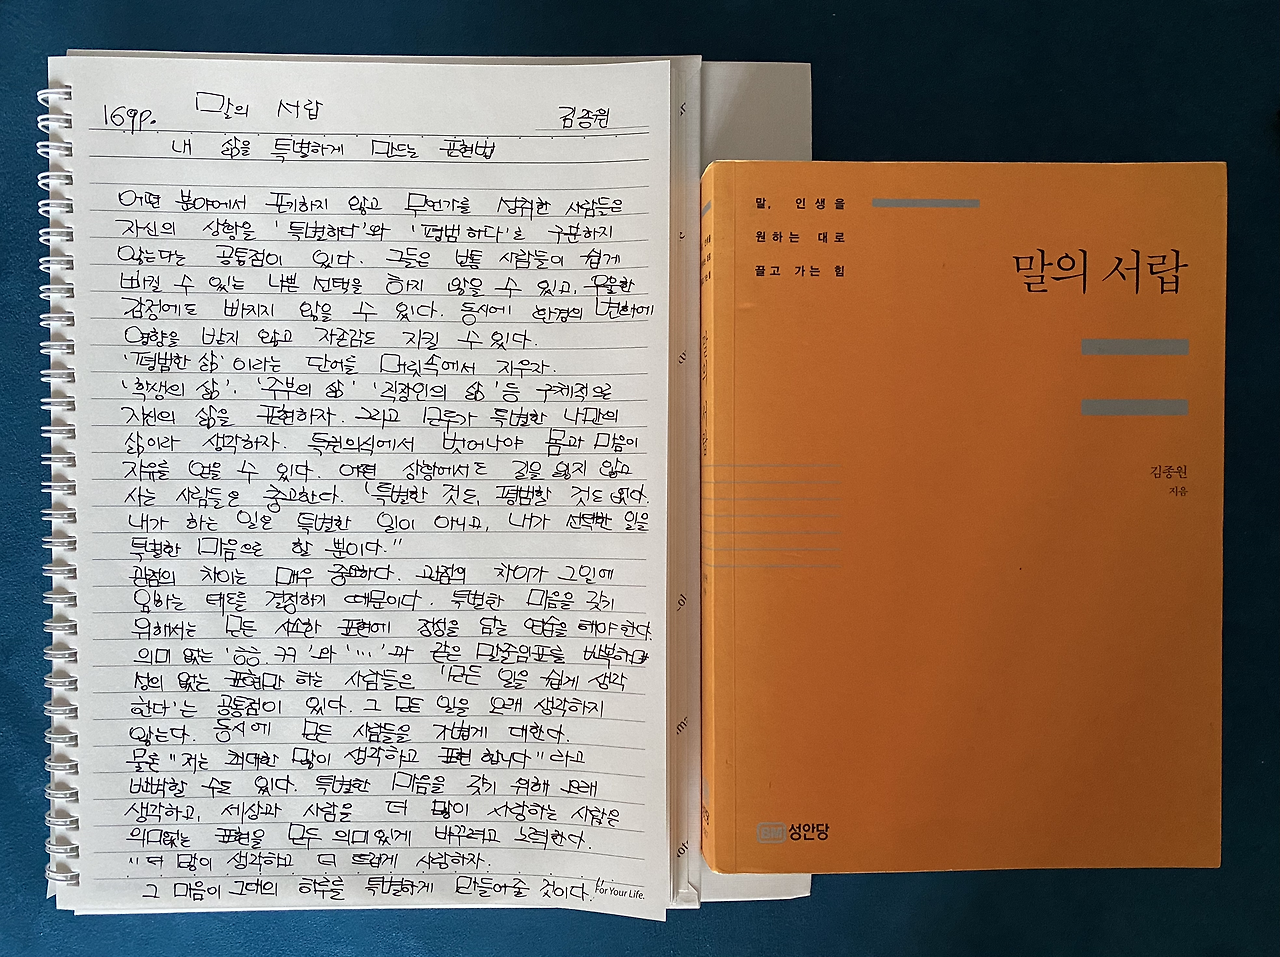 169p.
말의 서랍
김종원
내 삶을 특별하게 만드는 표현법
어떤 분야에서 포기하지 않고 무언가를 성취한 사람들은
자신의 상황을 '특별하다'와 '평범하다'로 구분하지
않는다는 공통점이 있다. 그들은 보통 사람들이 쉽게
빠질 수 있는 나쁜 선택을 하지 않을 수 있고, 우울한
감정에도 빠지지 않을 수 있다. 동시에 환경의 변화에
영향을 받지 않고 자존감도 지킬 수 있다.
'평범한 삶'이라는 단어를 머릿속에서 지우자.
'학생의 삶', '주부의 삶' '직장인의 삶' 등 구체적으로
자신의 삶을 표현하자. 그리고 모두가 특별한 나만의
삶이라 생각하자. 특권의식에서 벗어나야 몸과 마음이
자유를 얻을 수 있다. 어떤 상황에서도 길을 잃지 않고
사는 사람들은 충고한다. "특별한 것도, 평범할 것도 없다.
내가 하는 일은 특별한 일이 아니고, 내가 선택한 일을
특별한 마음으로 할 뿐이다."
관점의 차이는 매우 중요하다. 관점의 차이가 그 일에
임하는 태도를 결정하기 때문이다. 특별한 마음을 갖기
위해서는 모든 사소한 표현에 정성을 담는 연습을 해야 한다.
의미 없는 'ㅎㅎ, ㄲㄲ'와 '...'과 같은 말줄임표를 반복하며
성의 없는 표현만 하는 사람들은 "모든 일을 쉽게 생각
한다'는 공통점이 있다. 그 모든 일을 오래 생각하지
않는다. 동시에 모든 사람들을 가볍게 대한다.
물론 "저는 최대한 많이 생각하고 표현합니다"라고
반박할 수도 있다. 특별한 마음을 갖기 위해 오래
생각하고, 세상과 사람을 더 많이 사랑하는 사람은
의미없는 표현을 모두 의미있게 바꾸려고 노력한다.
"더 많이 생각하고 더 뜨겁게 사랑하자.
그 마음이 그대의 하루를 특별하게 만들어 줄 것이다."
For Your Life.
말, 인생을
원하는 대로
끌고 가는 힘
말의 서랍
김종원
지음
BM 성안당